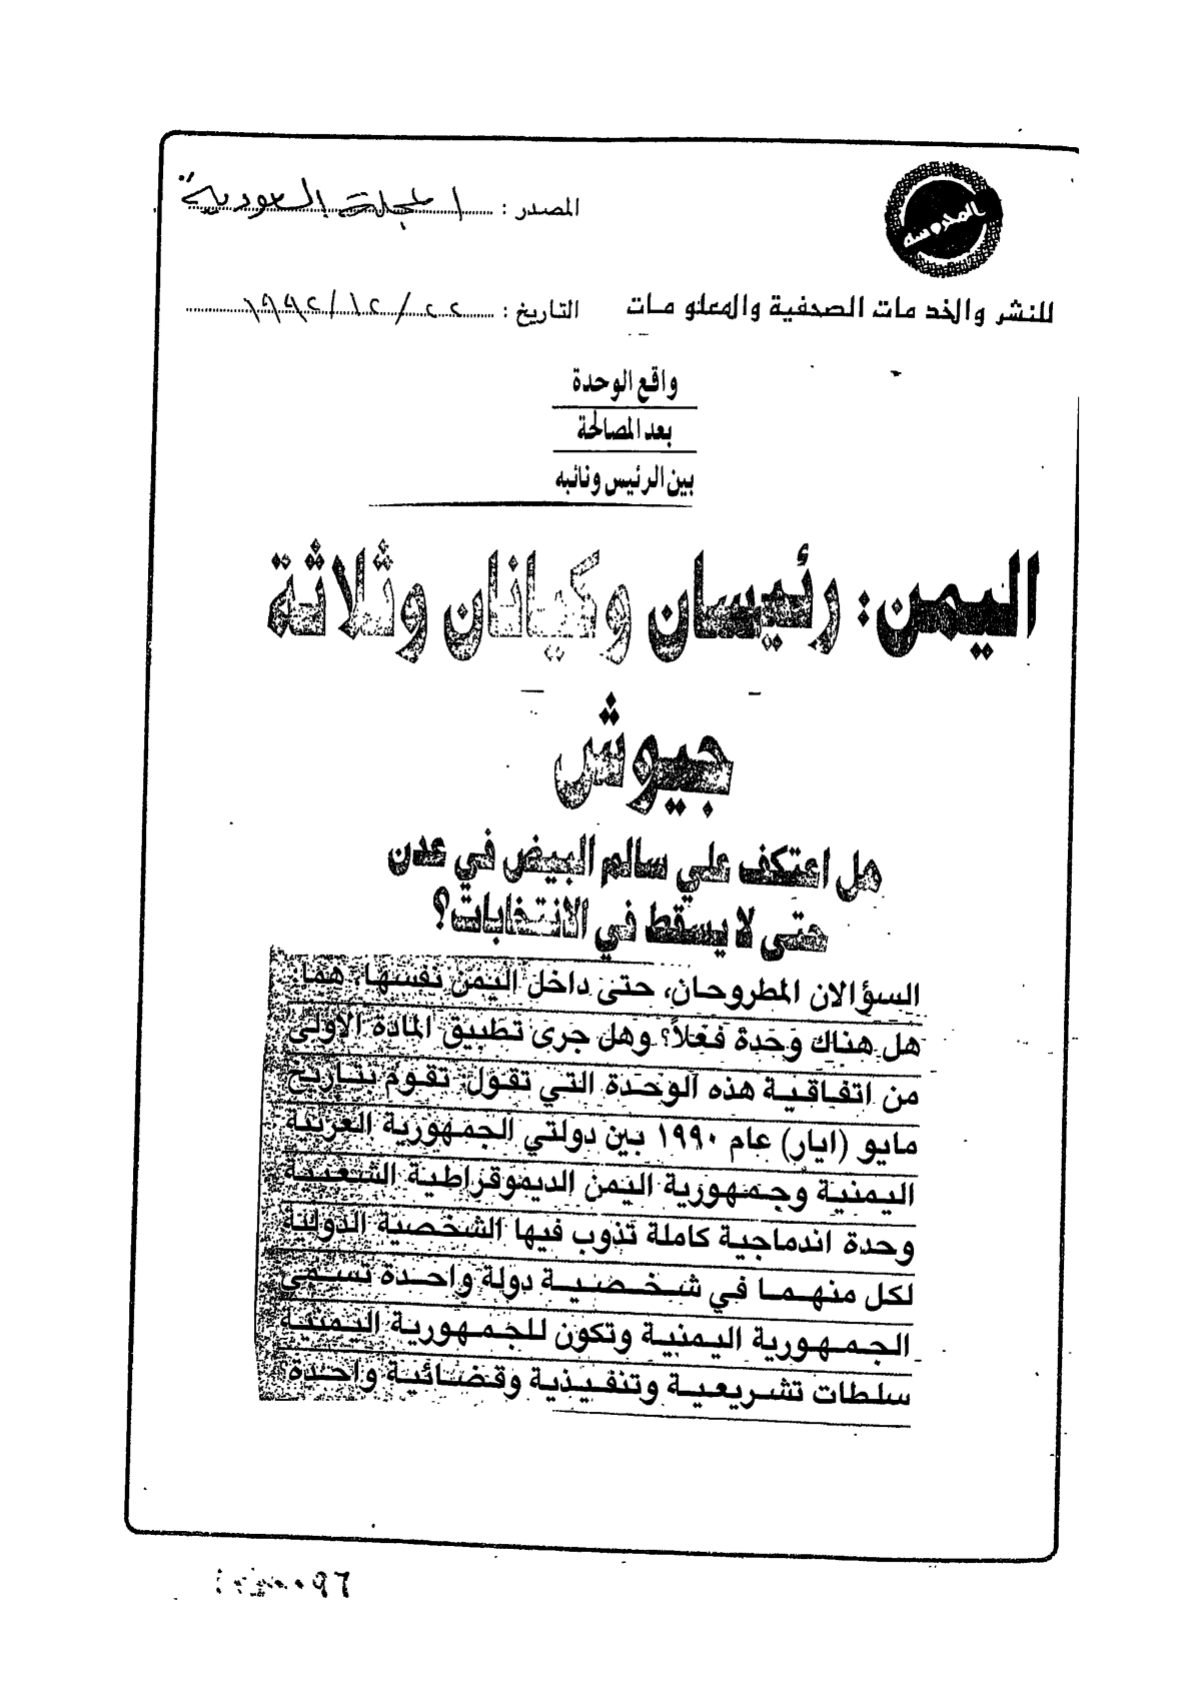 المحروسة
المصدر : المجلة السعودية
للنشر والخدمات الصحفية والمعلومات
التاريخ : ٢٢/١٢/١٩٩٢
واقع الوحدة
بعد المصالحة
بين الرئيس ونائبه
اليمن: رئيسان وكيانان وثلاثة
جيوش
هل اعتكف علي سالم البيض في عدن
حتى لا يسقط في الانتخابات؟
السؤالان المطروحان، حتى داخل اليمن نفسها، هما:
هل هناك وحدة فعلاً؟ وهل جرى تطبيق المادة الاولى
من اتفاقية هذه الوحدة التي تقول: تقوم بتاريخ
مايو (ايار) عام ١٩٩٠ بين دولتي الجمهورية العربية
اليمنية وجمهورية اليمن الديموقراطية الشعبية
وحدة اندماجية كاملة تذوب فيها الشخصية الدولية
لكل منهما في شخصية دولة واحدة تسمى
الجمهورية اليمنية وتكون للجمهورية اليمنية
سلطات تشريعية وتنفيذية وقضائية واحدة